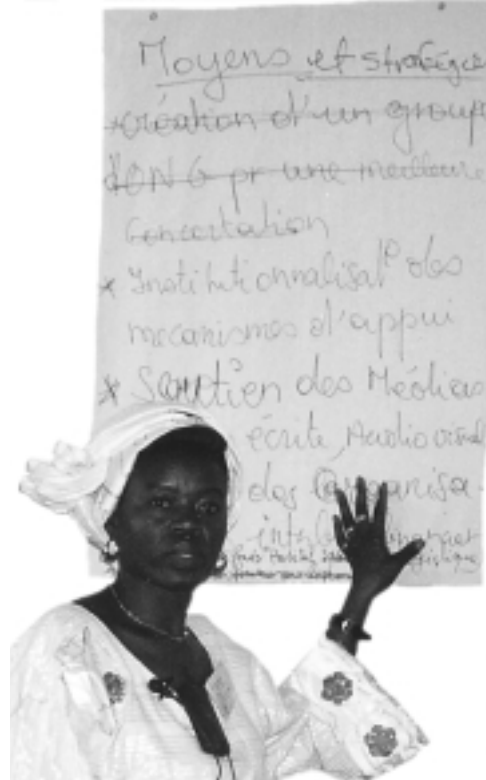 Moyens et stratégie
*création d'un group
d'ONG pr une meilleure
Concertation
* Institutionnalisat° des
mécanismes d'appui
* Soutien des Médias
écrite, Audio visuel
des Organisa-